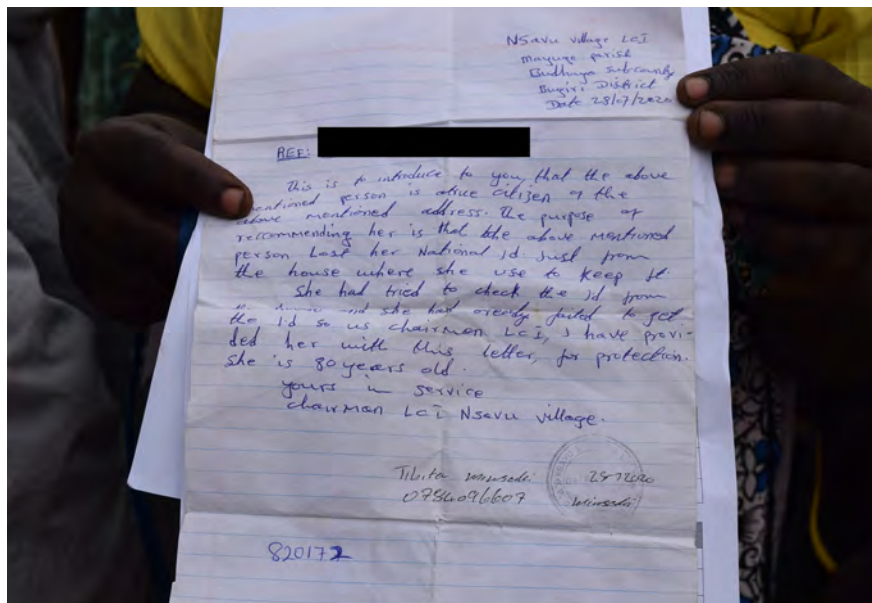 Nsavu village LCI
mayuge parish
Budhaya subcounty
Bugiri District
Date 28/07/2020
REF:
This is to introduce to you, that the above
mentioned person is atrue citizen of the
above mentioned address. The purpose of
reccommending her is that the above mentioned
person Lost her National id just from
the house where she use to keep it
She had tried to check the id from
and she had aready failed to get
the id so us chairman LCI, I have provi-
ded her with this letter, for protection.
She is 80 years old.
yours in service
chairman LCI Nsavu village.
Tibita
28-7-2020
0784096607
820172